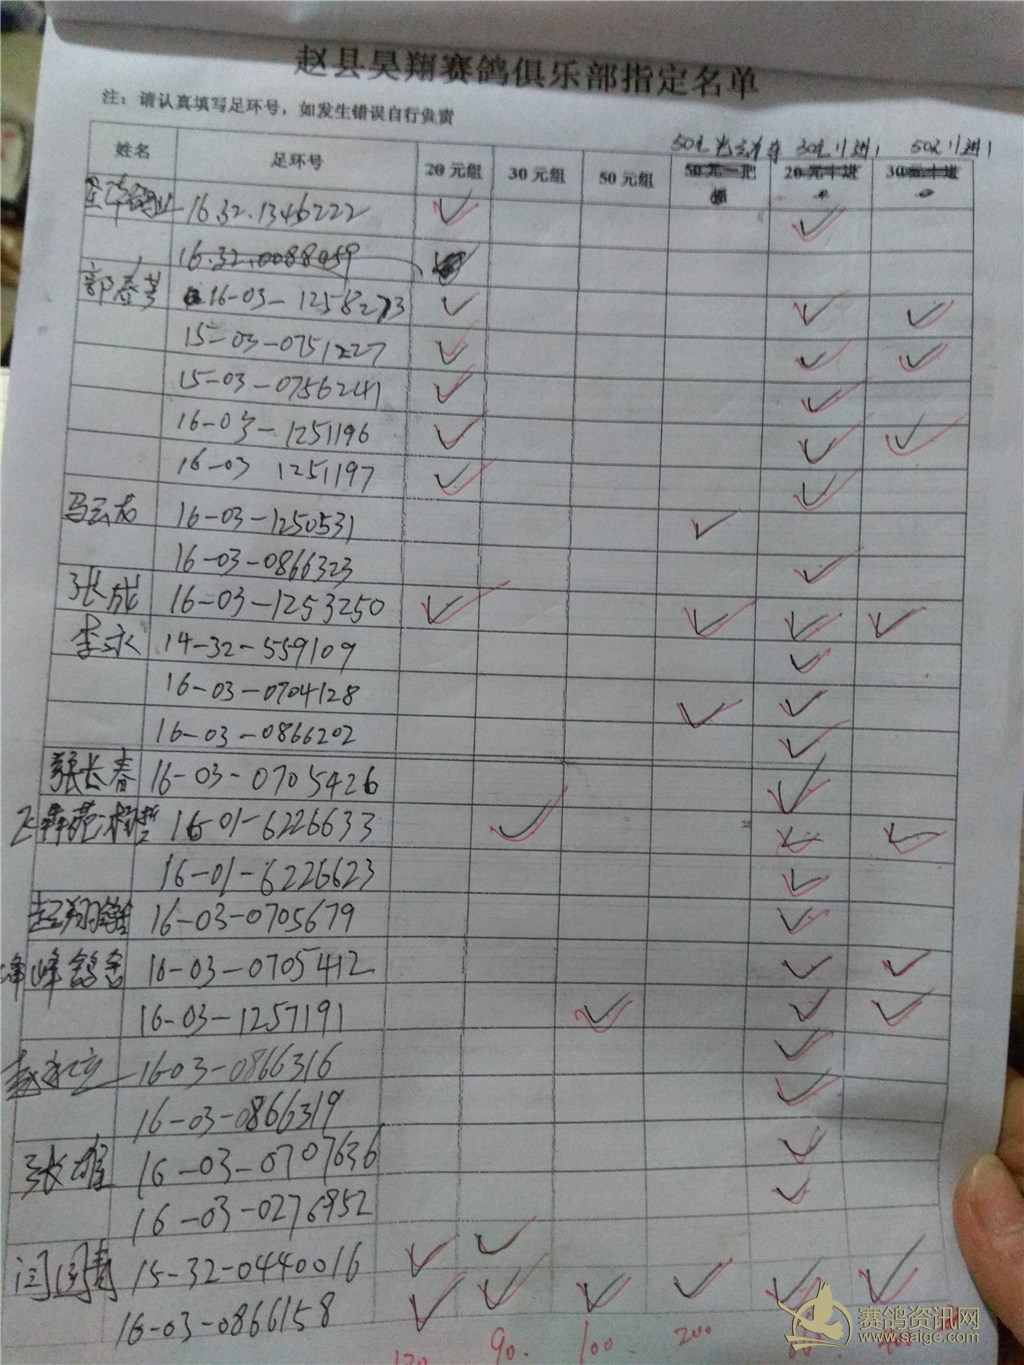 赵县昊翔赛鸽俱乐部指定名单
注：请认真填写足环号，如发生错误自行负责
姓名 足环号 20元组 30元组 50元组
16.32.1346222 ✓ ✓
16.32.0088959
郭春芳 16-03-1258273 ✓ ✓ ✓
15-03-0751227 ✓ ✓ ✓
15-03-0756241 ✓ ✓
16-03-1251196 ✓ ✓ ✓
16-03 1251197 ✓ ✓
马云龙 16-03-1250531 ✓
16-03-0866323 ✓
张成 16-03-1253250 ✓ ✓ ✓ ✓
李永 14-32-559109 ✓
16-03-0704128 ✓ ✓
16-03-0866202 ✓
張长春 16-03-0705426 ✓
16-01-6226633 ✓ ✓ ✓
16-01-6226623 ✓
16-03-0705679 ✓
峰峰鸽舍 16-03-0705412 ✓ ✓
16-03-1257191 ✓ ✓ ✓
16-03-0866316 ✓
16-03-0866319 ✓
张雄 16-03-0707636 ✓
16-03-0276952 ✓
闫国青 15-32-0440016 ✓ ✓
16-03-0866158 ✓ ✓ ✓ ✓ ✓ ✓
90. 100 200
赛鸽资讯网
www.saige.com